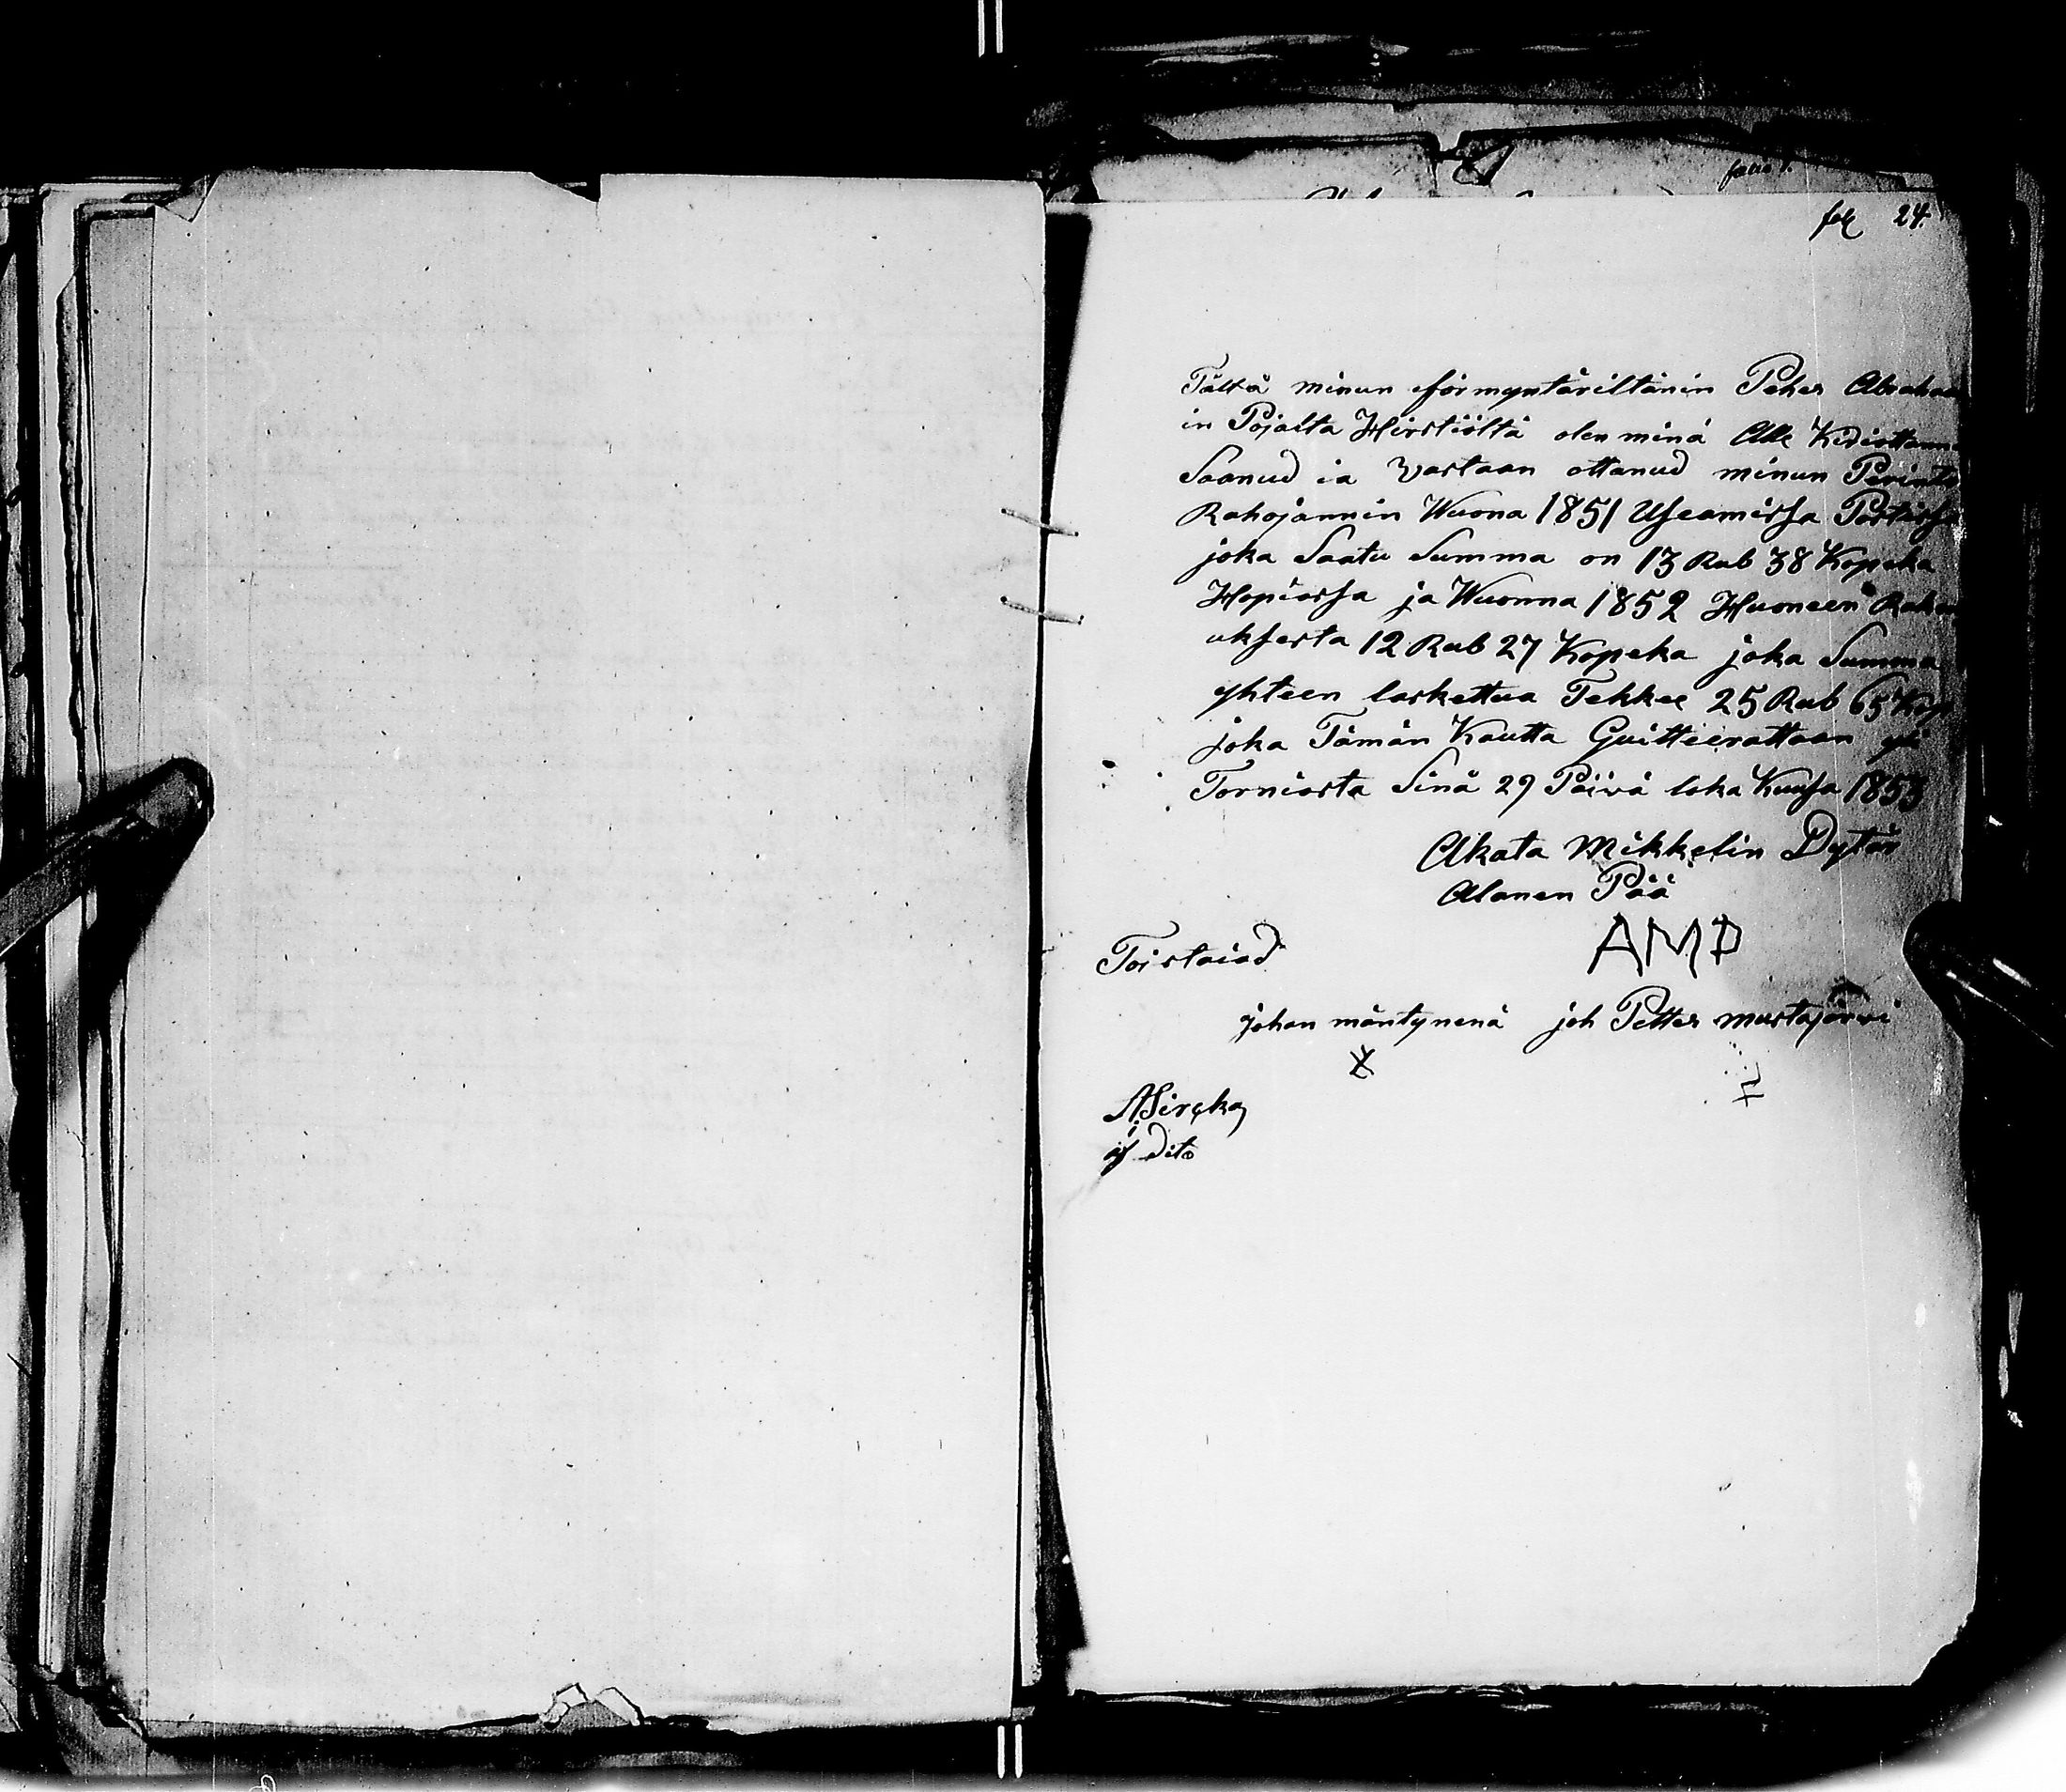 fol 24.
Tältä minun förmyntäriltänin Peher Abraha
in Pojalta Hirstiöltä olen minä Alle Kirioittann
Saanud ia Vastaan ottanud minun Perintö
Rahojannin Wuona 1851 Useamissa Postissa
joka Saatu Summa on 13 Rub 38 Kopeka
Hopiassa ja Wuonna 1852 Huoneen Raken
uksesta 12 Rub 27 Kopeka joka Summa
yhteen laskettua Tekkee 25 Rub 65 Kop
joka Tämän Kautta Guitteerattaan
Torniosta Sinä 29 Päivä loka Kuusa 1853
Akata Mikkelin Dytär
Alanen Pää
AMD
Toistaiad
Johan mäntynenä joh Petter mustajärvi
dito